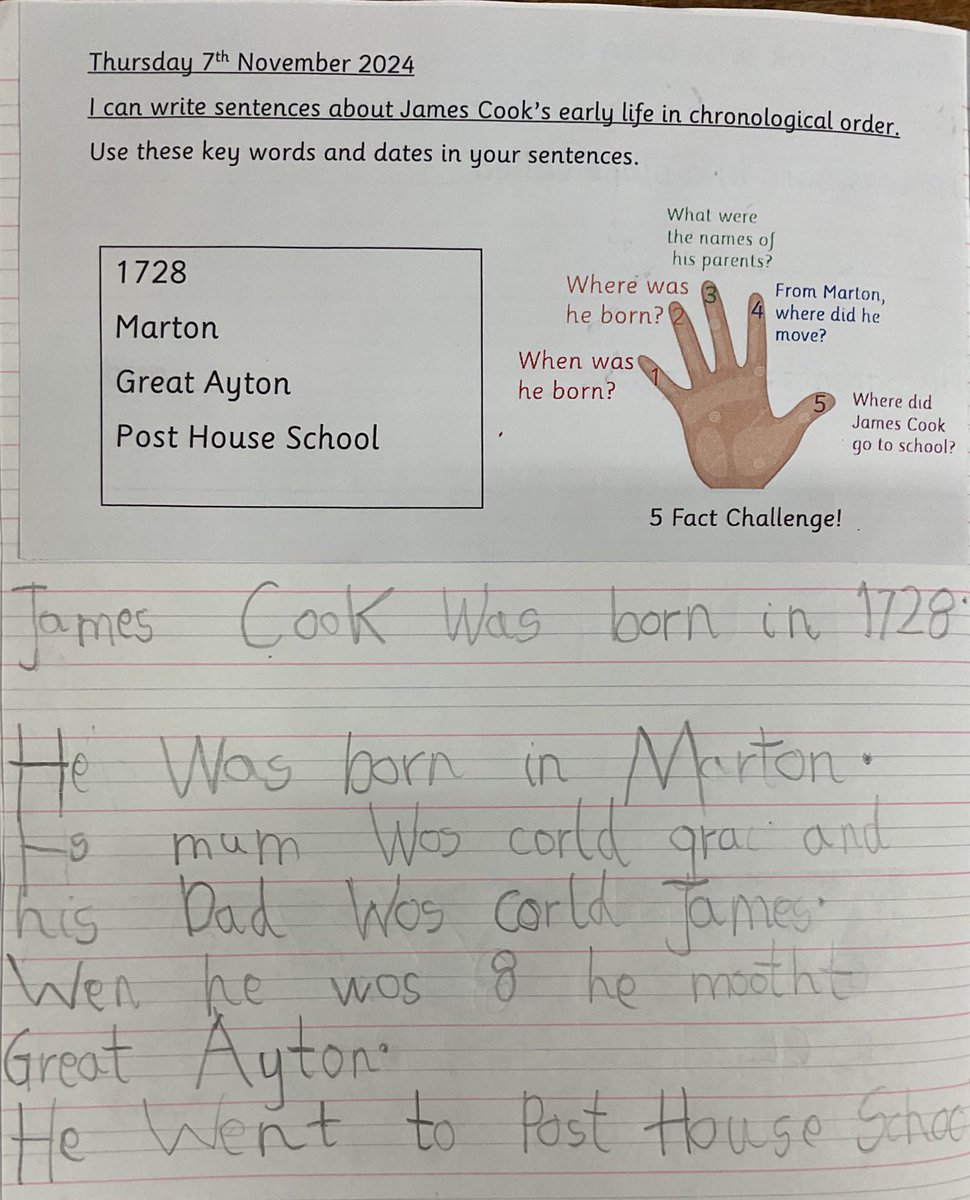 Thursday 7th November 2024
I can write sentences about James Cook's early life in chronological order.
Use these key words and dates in your sentences.
1728
Marton
Great Ayton
Post House School
When was
he born?
1
Where was
he born?
2
What were
the names of
his parents?
3
From Marton,
where did he
move?
4
Where did
James Cook
go to school?
5
5 Fact Challenge!
James Cook Was born in 1728.
He Was born in Marton.
mum Wos corld grac and
his Dad Wos corld James.
Wen he wos 8 he mootht
Great Ayton.
He Went to Post House Schoo